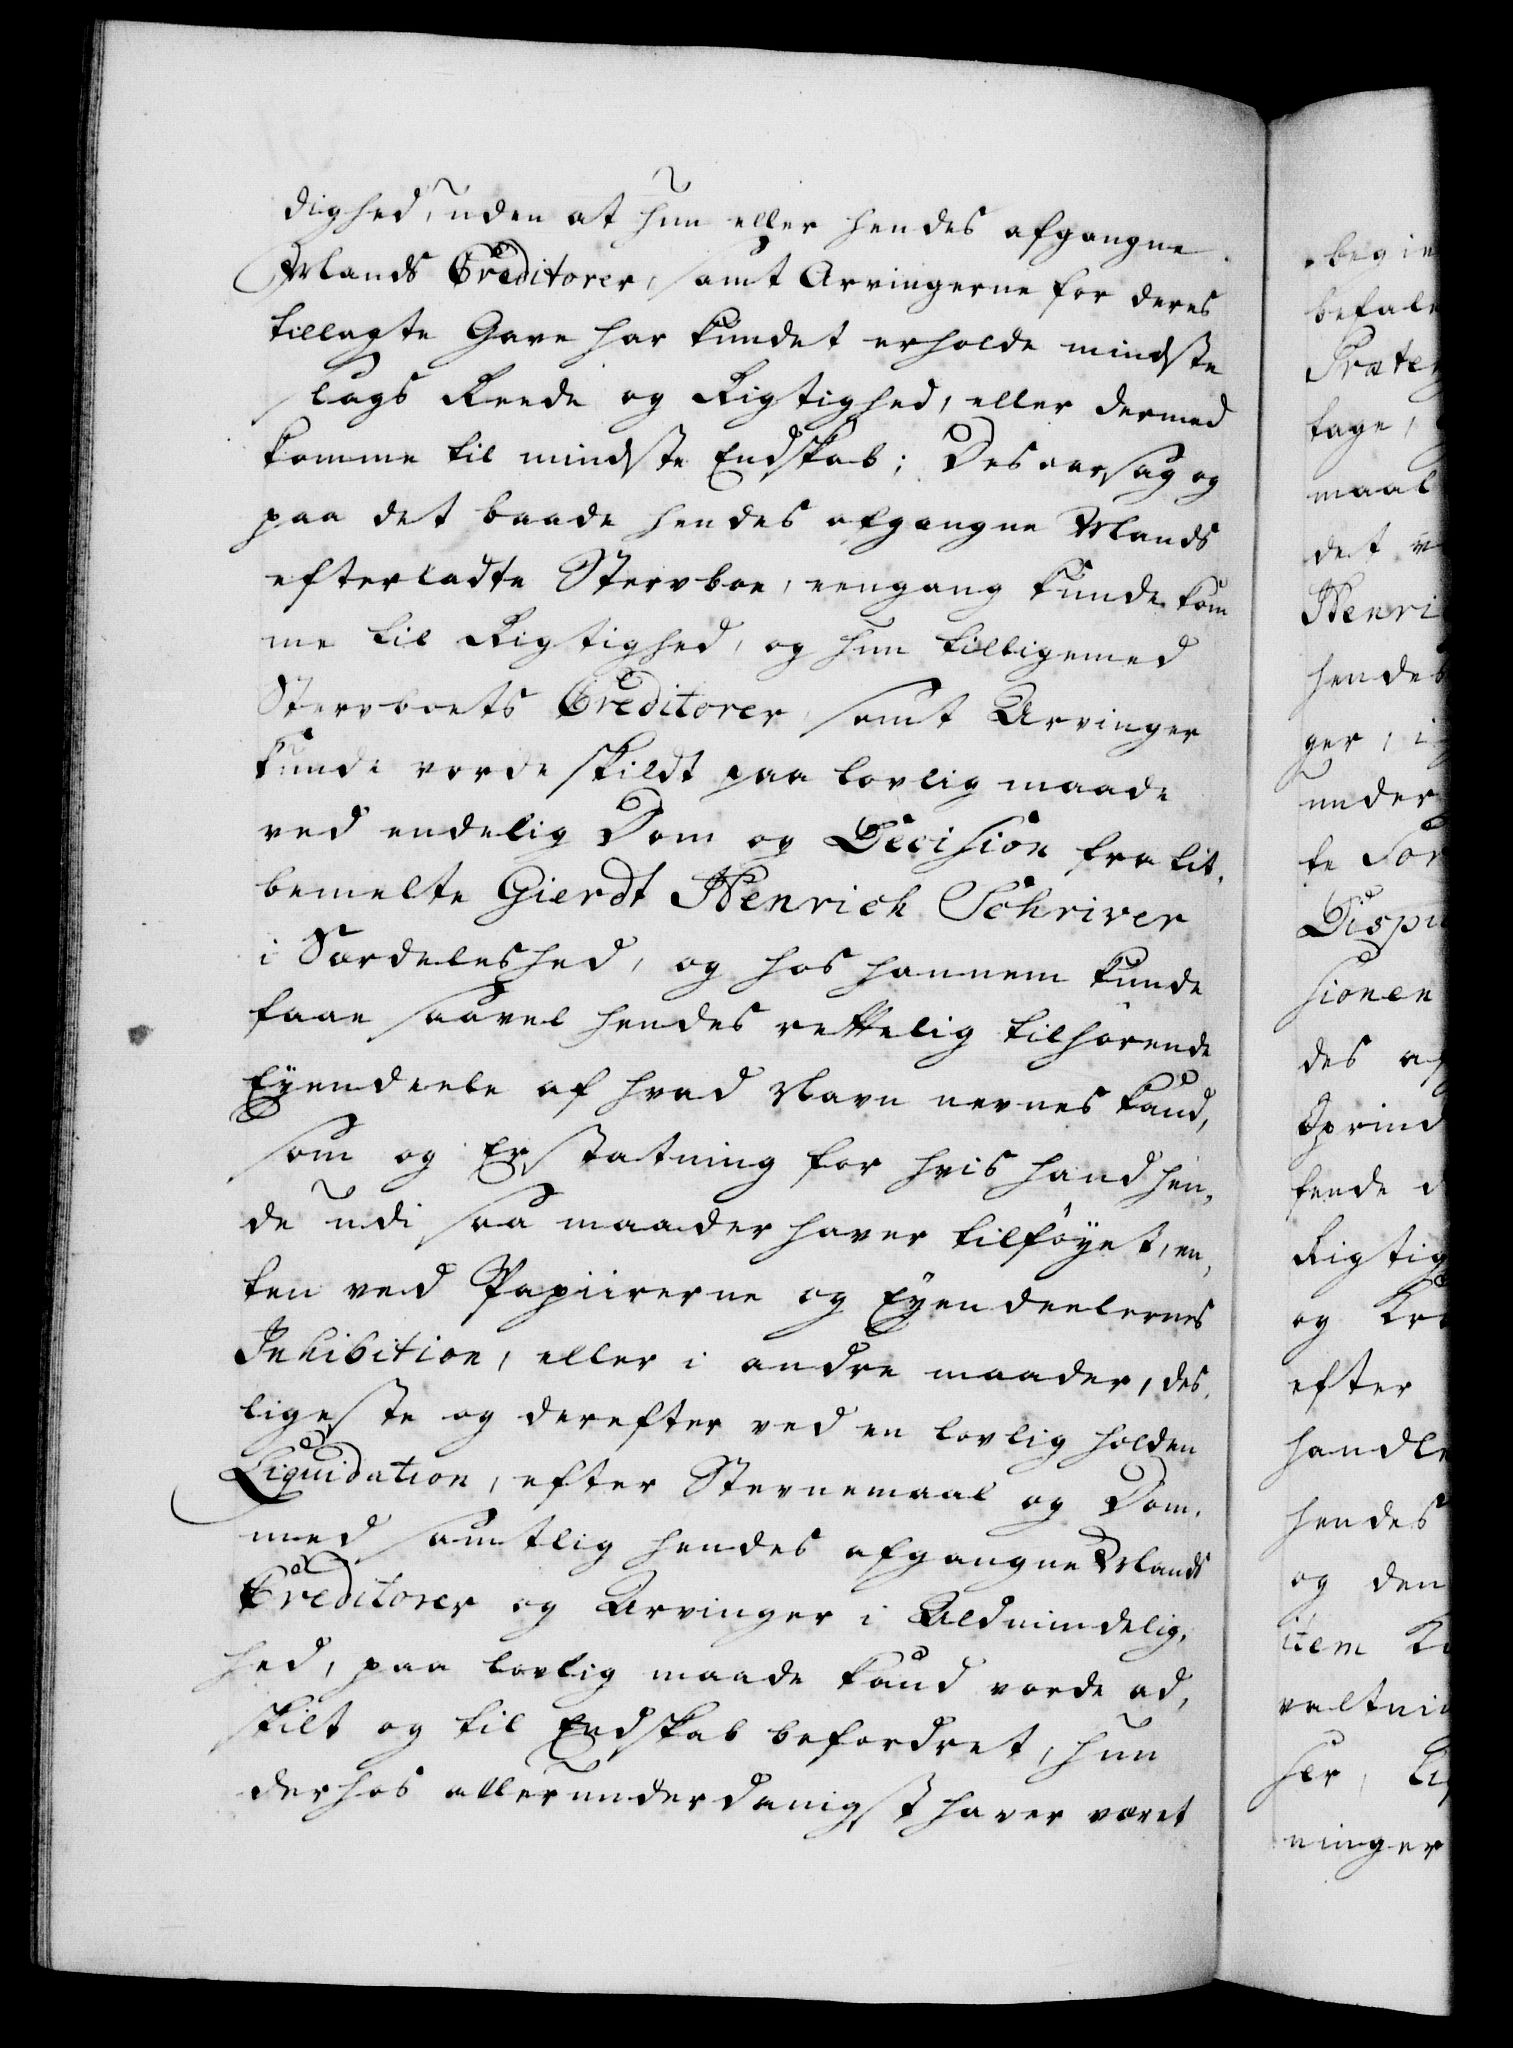 dighed, uden at hun eller hendes afgangne
Mands Creditorer, samt Arvingerne for deres
tillagte Gave har kundet erholde mindste
slags Reede og Rigtighed, eller dermed
komme til mindste Endskab; Desaarsag og
paa det baade hendes afgangne Mands
efterladte Stervboe, eengang kunde kom
me til Rigtighed, og hun tilligemed
Stervboets Creditorer samt Arvinger
kunde vorde skildt paa lovlig maade
ved endelig Dom og Decision fra bit.
bemelte Gierdt Henrich Schriver
i Særdeleshed, og hos hannem kunde
faae saavel hendes rettelig tilhørende
Eyendeele af hvad Navn nevnes kand,
som og Erstatning for hvis hand hen,
de udi saa maader haver tilføyet, en,
ten ved Papiirerne og Eyendeelernes
Inhibition, eller i andre maader, des,
ligeste og derefter ved en lovlig holden
Liquidation, efter Stevnemaal og Dom,
med samtlig hendes afgangne Mands
Creditorer og Arvinger i Aldmindelig,
hed, paa lovlig maade kand vorde ad,
skilt og til Endskab befordret, hun
derhos allerunderdanigst haver været
begie
befale
Præten
tage,
maal
det
Henri
hendes
ger, i
under
te For
Dispu
sionen
des af
Oprind
fende d
Rigtig
og Kra
efter
handle
hendes
og den
item
valtnin
ser,
ninger